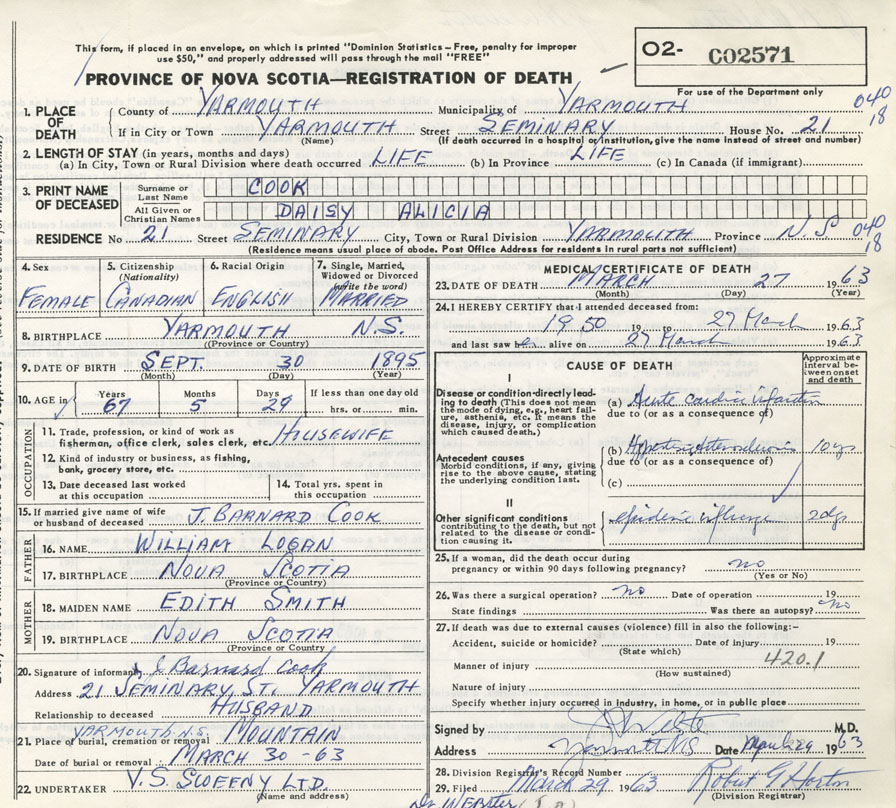 This form, if placed in an envelope, on which is printed "Dominion Statistics – Free, penalty for improper
use $50," and properly addressed will pass through the mail "FREE"
PROVINCE OF NOVA SCOTIA—REGISTRATION OF DEATH
O2- C02571
For use of the Department only
1. PLACE OF DEATH County of YARMOUTH Municipality of YARMOUTH 040
If in City or Town YARMOUTH Street SEMINARY House No. 21 18
(Name) (If death occurred in a hospital or institution, give the name instead of street and number)
2. LENGTH OF STAY (in years, months and days)
(a) In City, Town or Rural Division where death occurred LIFE (b) In Province LIFE (c) In Canada (if immigrant)
3. PRINT NAME OF DECEASED Surname or Last Name COOK
All Given or Christian Names DAISY ALICIA
RESIDENCE No 21 Street SEMINARY City, Town or Rural Division YARMOUTH Province N.S 040 18
(Residence means usual place of abode. Post Office Address for residents in rural parts not sufficient)
4. Sex FEMALE
5. Citizenship (Nationality) CANADIAN
6. Racial Origin ENGLISH
7. Single, Married, Widowed or Divorced (write the word) MARRIED
8. BIRTHPLACE YARMOUTH N.S.
(Province or Country)
9. DATE OF BIRTH SEPT. 30 1895
(Month) (Day) (Year)
10. AGE in Years 67 Months 5 Days 29 If less than one day old hrs. or min.
OCCUPATION
11. Trade, profession, or kind of work as fisherman, office clerk, sales clerk, etc. HOUSEWIFE
12. Kind of industry or business, as fishing, bank, grocery store, etc.
13. Date deceased last worked at this occupation
14. Total yrs. spent in this occupation
15. If married give name of wife or husband of deceased J. BARNARD COOK
FATHER
16. NAME WILLIAM LOGAN
17. BIRTHPLACE NOVA SCOTIA
(Province or Country)
MOTHER
18. MAIDEN NAME EDITH SMITH
19. BIRTHPLACE NOVA SCOTIA
(Province or Country)
20. Signature of informant J Barnard Cook
Address 21 SEMINARY ST. YARMOUTH
Relationship to deceased HUSBAND
21. Place of burial, cremation or removal YARMOUTH N.S. MOUNTAIN
Date of burial or removal MARCH 30 - 63
22. UNDERTAKER V.S. SWEENY LTD.
(Name and address)
MEDICAL CERTIFICATE OF DEATH
23. DATE OF DEATH MARCH 27 1963
(Month) (Day) (Year)
24. I HEREBY CERTIFY that I attended deceased from:
1950 19 to 27 March 1963
and last saw her alive on 27 March 1963
CAUSE OF DEATH
Approximate interval between onset and death
I
Disease or condition directly leading to death (This does not mean the mode of dying, e.g., heart failure, asthenia, etc. It means the disease, injury, or complication which caused death.)
(a) Acute cardiac infarction
due to (or as a consequence of)
Antecedent causes
Morbid conditions, if any, giving rise to the above cause, stating the underlying condition last.
(b) 10 yrs
due to (or as a consequence of)
(c)
II
Other significant conditions
contributing to the death, but not related to the disease or condition causing it.
epidemic influenza 2 dys
25. If a woman, did the death occur during pregnancy or within 90 days following pregnancy? no
(Yes or No)
26. Was there a surgical operation? no Date of operation 19
State findings Was there an autopsy? no
27. If death was due to external causes (violence) fill in also the following:–
Accident, suicide or homicide? Date of injury 19
(State which)
Manner of injury 420.1
(How sustained)
Nature of injury
Specify whether injury occurred in industry, in home, or in public place
Signed by M.D.
Address Yarmouth NS Date March 29 1963
28. Division Registrar's Record Number
29. Filed March 29 1963 Robert G Horton
(Division Registrar)
Dr WEBSTER